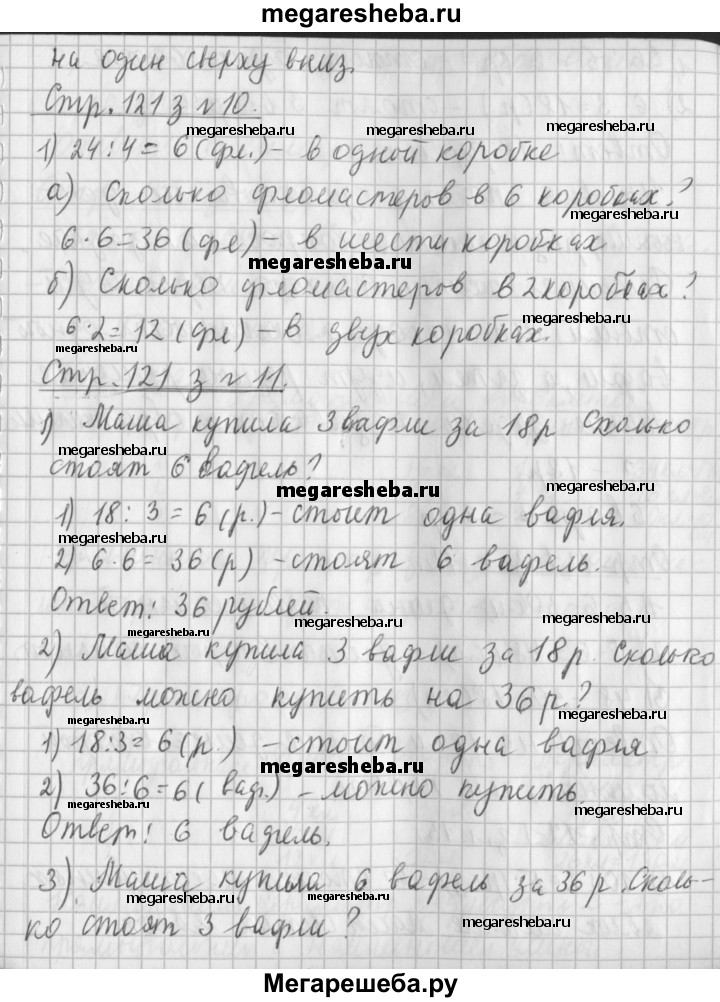 megaresheba.ru
на один сверху вниз.
Стр. 121 з №10.
megaresheba.ru megaresheba.ru
1) 24:4=6(фл.)- в одной коробке
а) Сколько фломастеров в 6 коробках?
megaresheba.ru
6·6=36(фл)- в шести коробках
megaresheba.ru
б) Сколько фломастеров в 2 коробках?
megaresheba.ru
6·2=12(фл)- в двух коробках.
megaresheba.ru megaresheba.ru
Стр. 121 з №11.
megaresheba.ru
1) Маша купила 3 вафли за 18р Сколько
megaresheba.ru
стоят 6 вафель?
megaresheba.ru megaresheba.ru
1) 18:3=6(р.)-стоит одна вафля.
megaresheba.ru
2) 6·6=36(р) -стоят 6 вафель.
Ответ: 36 рублей.
megaresheba.ru megaresheba.ru megaresheba.ru
2) Маша купила 3 вафли за 18р. Сколько
вафель можно купить на 36р?
megaresheba.ru megaresheba.ru
1) 18:3=6(р.) -стоит одна вафля
megaresheba.ru
2) 36:6=6( ваф.) -можно купить.
megaresheba.ru megaresheba.ru
Ответ: 6 вафель.
3) Маша купила 6 вафель за 36р. Сколь-
megaresheba.ru megaresheba.ru
ко стоят 3 вафли?
megaresheba.ru
Мегарешеба.ру